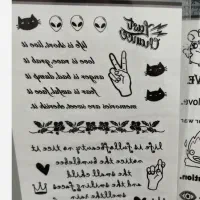 life is short live it
love is rare grab it
anger is bad dump it
fear is awful face it
memories are sweet cherish it.
life is full of beauty notice it
notice the bumblebee
the small child
and the smiling faces
smell the rain